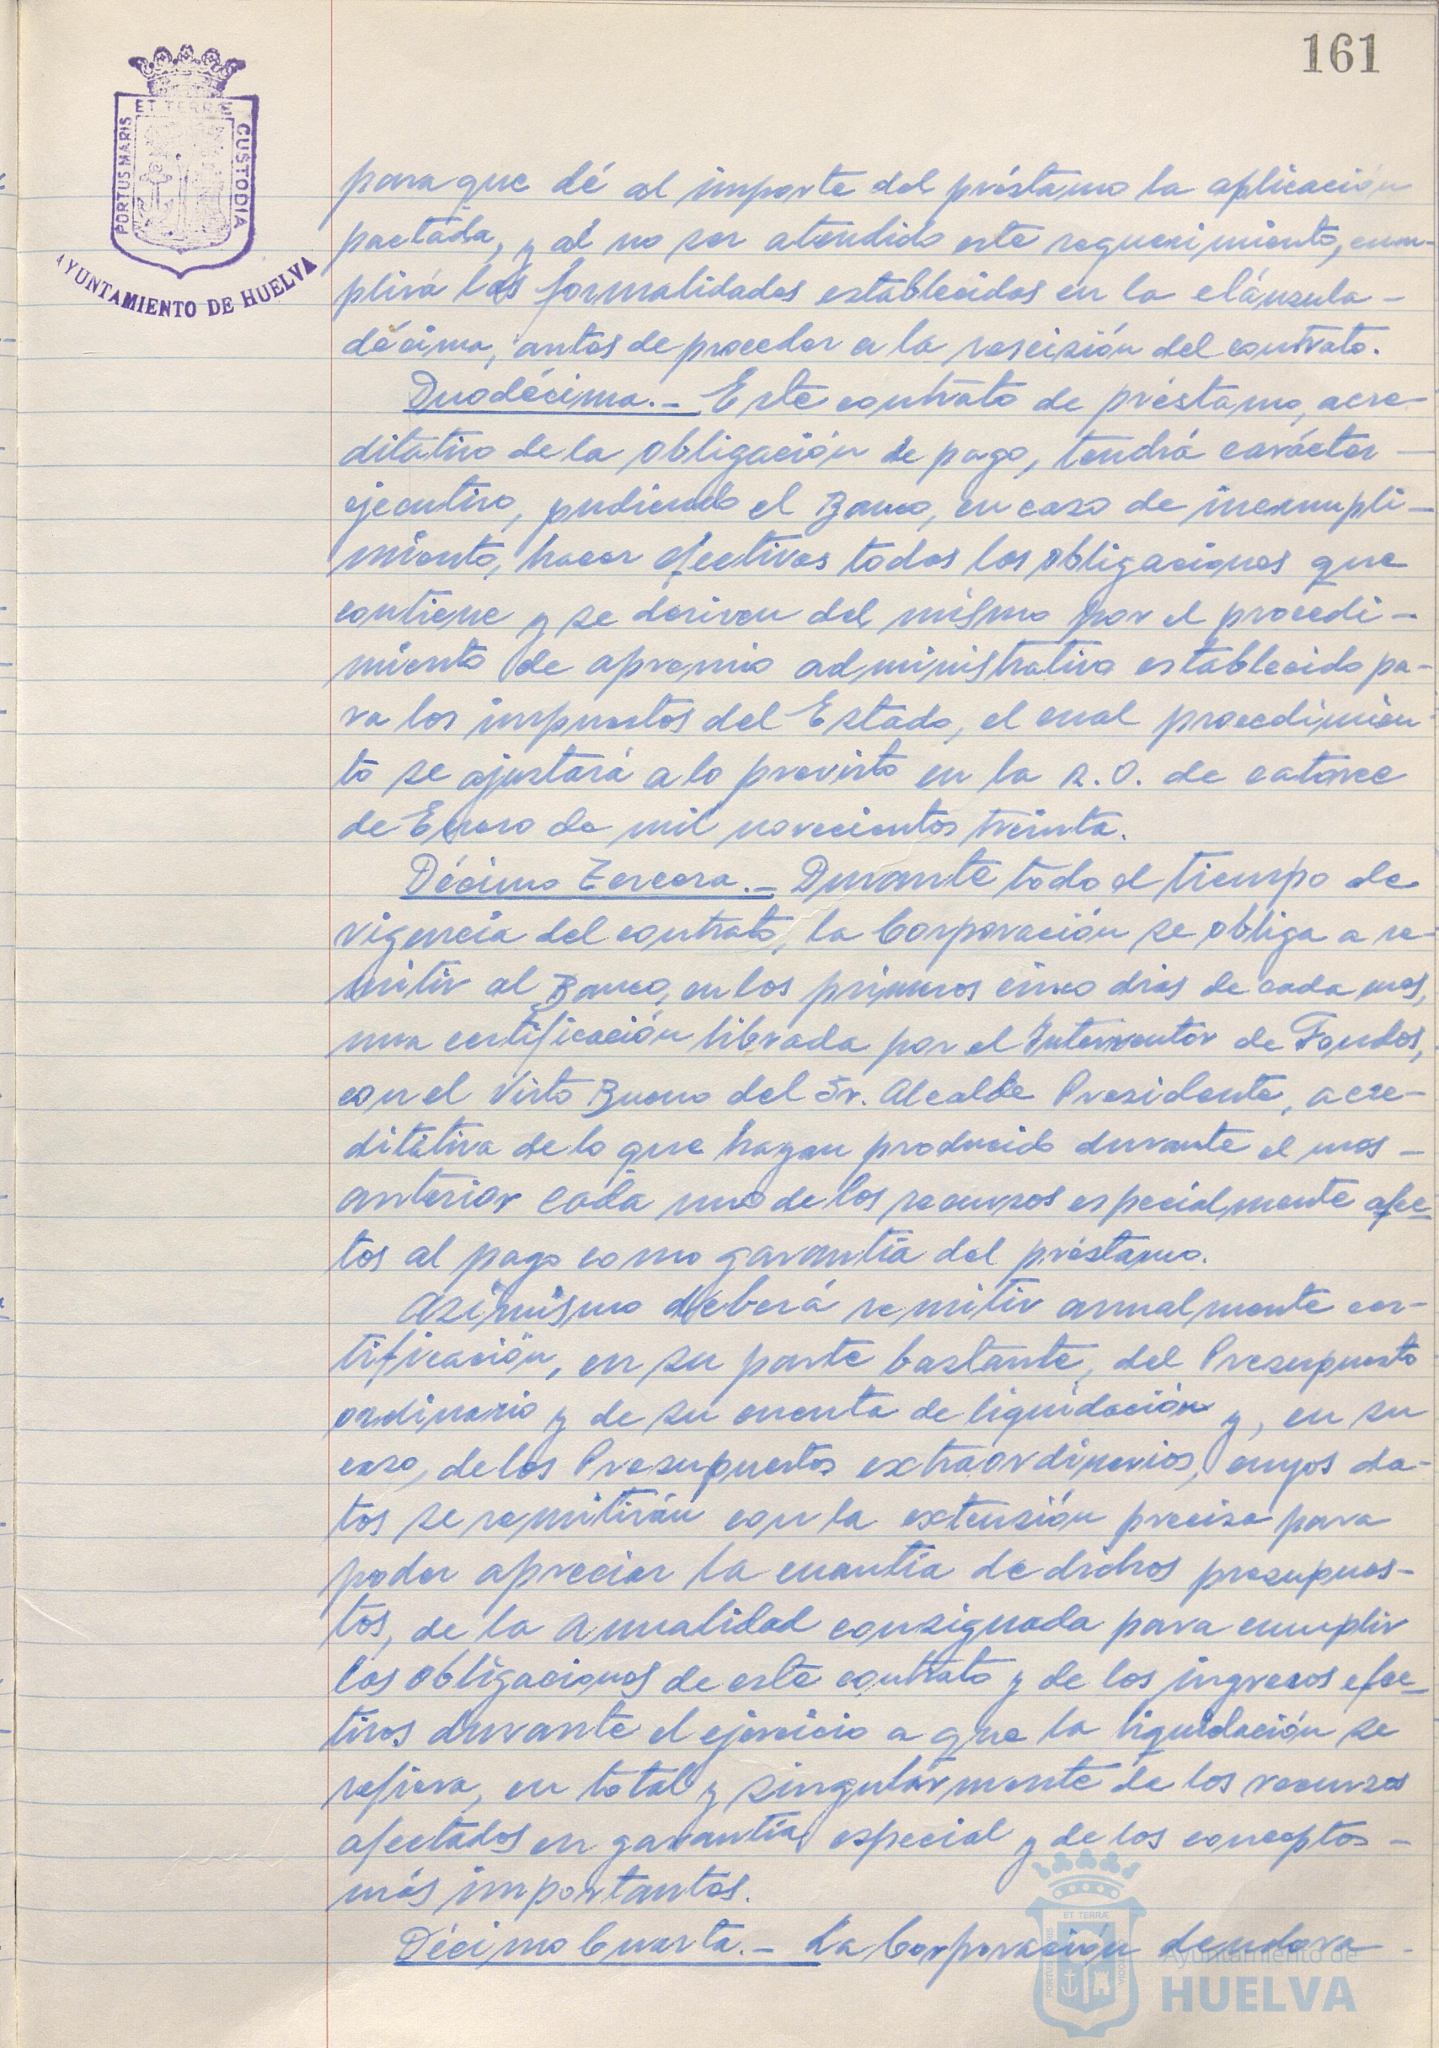 161
ET TERRÆ
PORTUS MARIS
CUSTODIA
AYUNTAMIENTO DE HUELVA
para que dé al importe del préstamo la aplicación
pactada, y al no ser atendido este requerimiento, cum-
plirá las formalidades establecidas en la cláusula-
décima, antes de proceder a la rescisión del contrato.
Duodécima.- Este contrato de préstamo, acre-
ditativo de la obligación de pago, tendrá carácter-
ejecutivo, pudiendo el Banco, en caso de incumpli-
miento, hacer efectivas todas las obligaciones que
contiene y se deriven del mismo por el procedi-
miento de apremio administrativo establecido pa-
ra los impuestos del Estado, el cual procedimien-
to se ajustará a lo previsto en la R.O. de catorce
de Enero de mil novecientos treinta.
Décimo Tercera.- Durante todo el tiempo de
vigencia del contrato, la Corporación se obliga a re-
mitir al Banco, en los primeros cinco dias de cada mes,
una certificación librada por el Interventor de Fondos,
con el Visto Bueno del Sr. Alcalde Presidente, acre-
ditativa de lo que hayan producido durante el mes-
anterior cada uno de los recursos especialmente afec-
tos al pago como garantía del préstamo.
Asimismo deberá remitir anualmente cer-
tificación, en su parte bastante, del Presupuesto
ordinario y de su cuenta de liquidación y, en su
caso, de los Presupuestos extraordinarios, cuyos da-
tos se remitirán con la extensión precisa para
poder apreciar la cuantía de dichos presupues-
tos, de la anualidad consignada para cumplir
las obligaciones de este contrato y de los ingresos efec-
tivos durante el ejercicio a que la liquidación se
refiera, en total y singularmente de los recursos
afectados en garantía especial y de los conceptos-
más importantes.
Décimo Cuarta.- La Corporación deudora-
ET TERRÆ
PORTUS MARIS
CUSTODIA
Ayuntamiento de
HUELVA